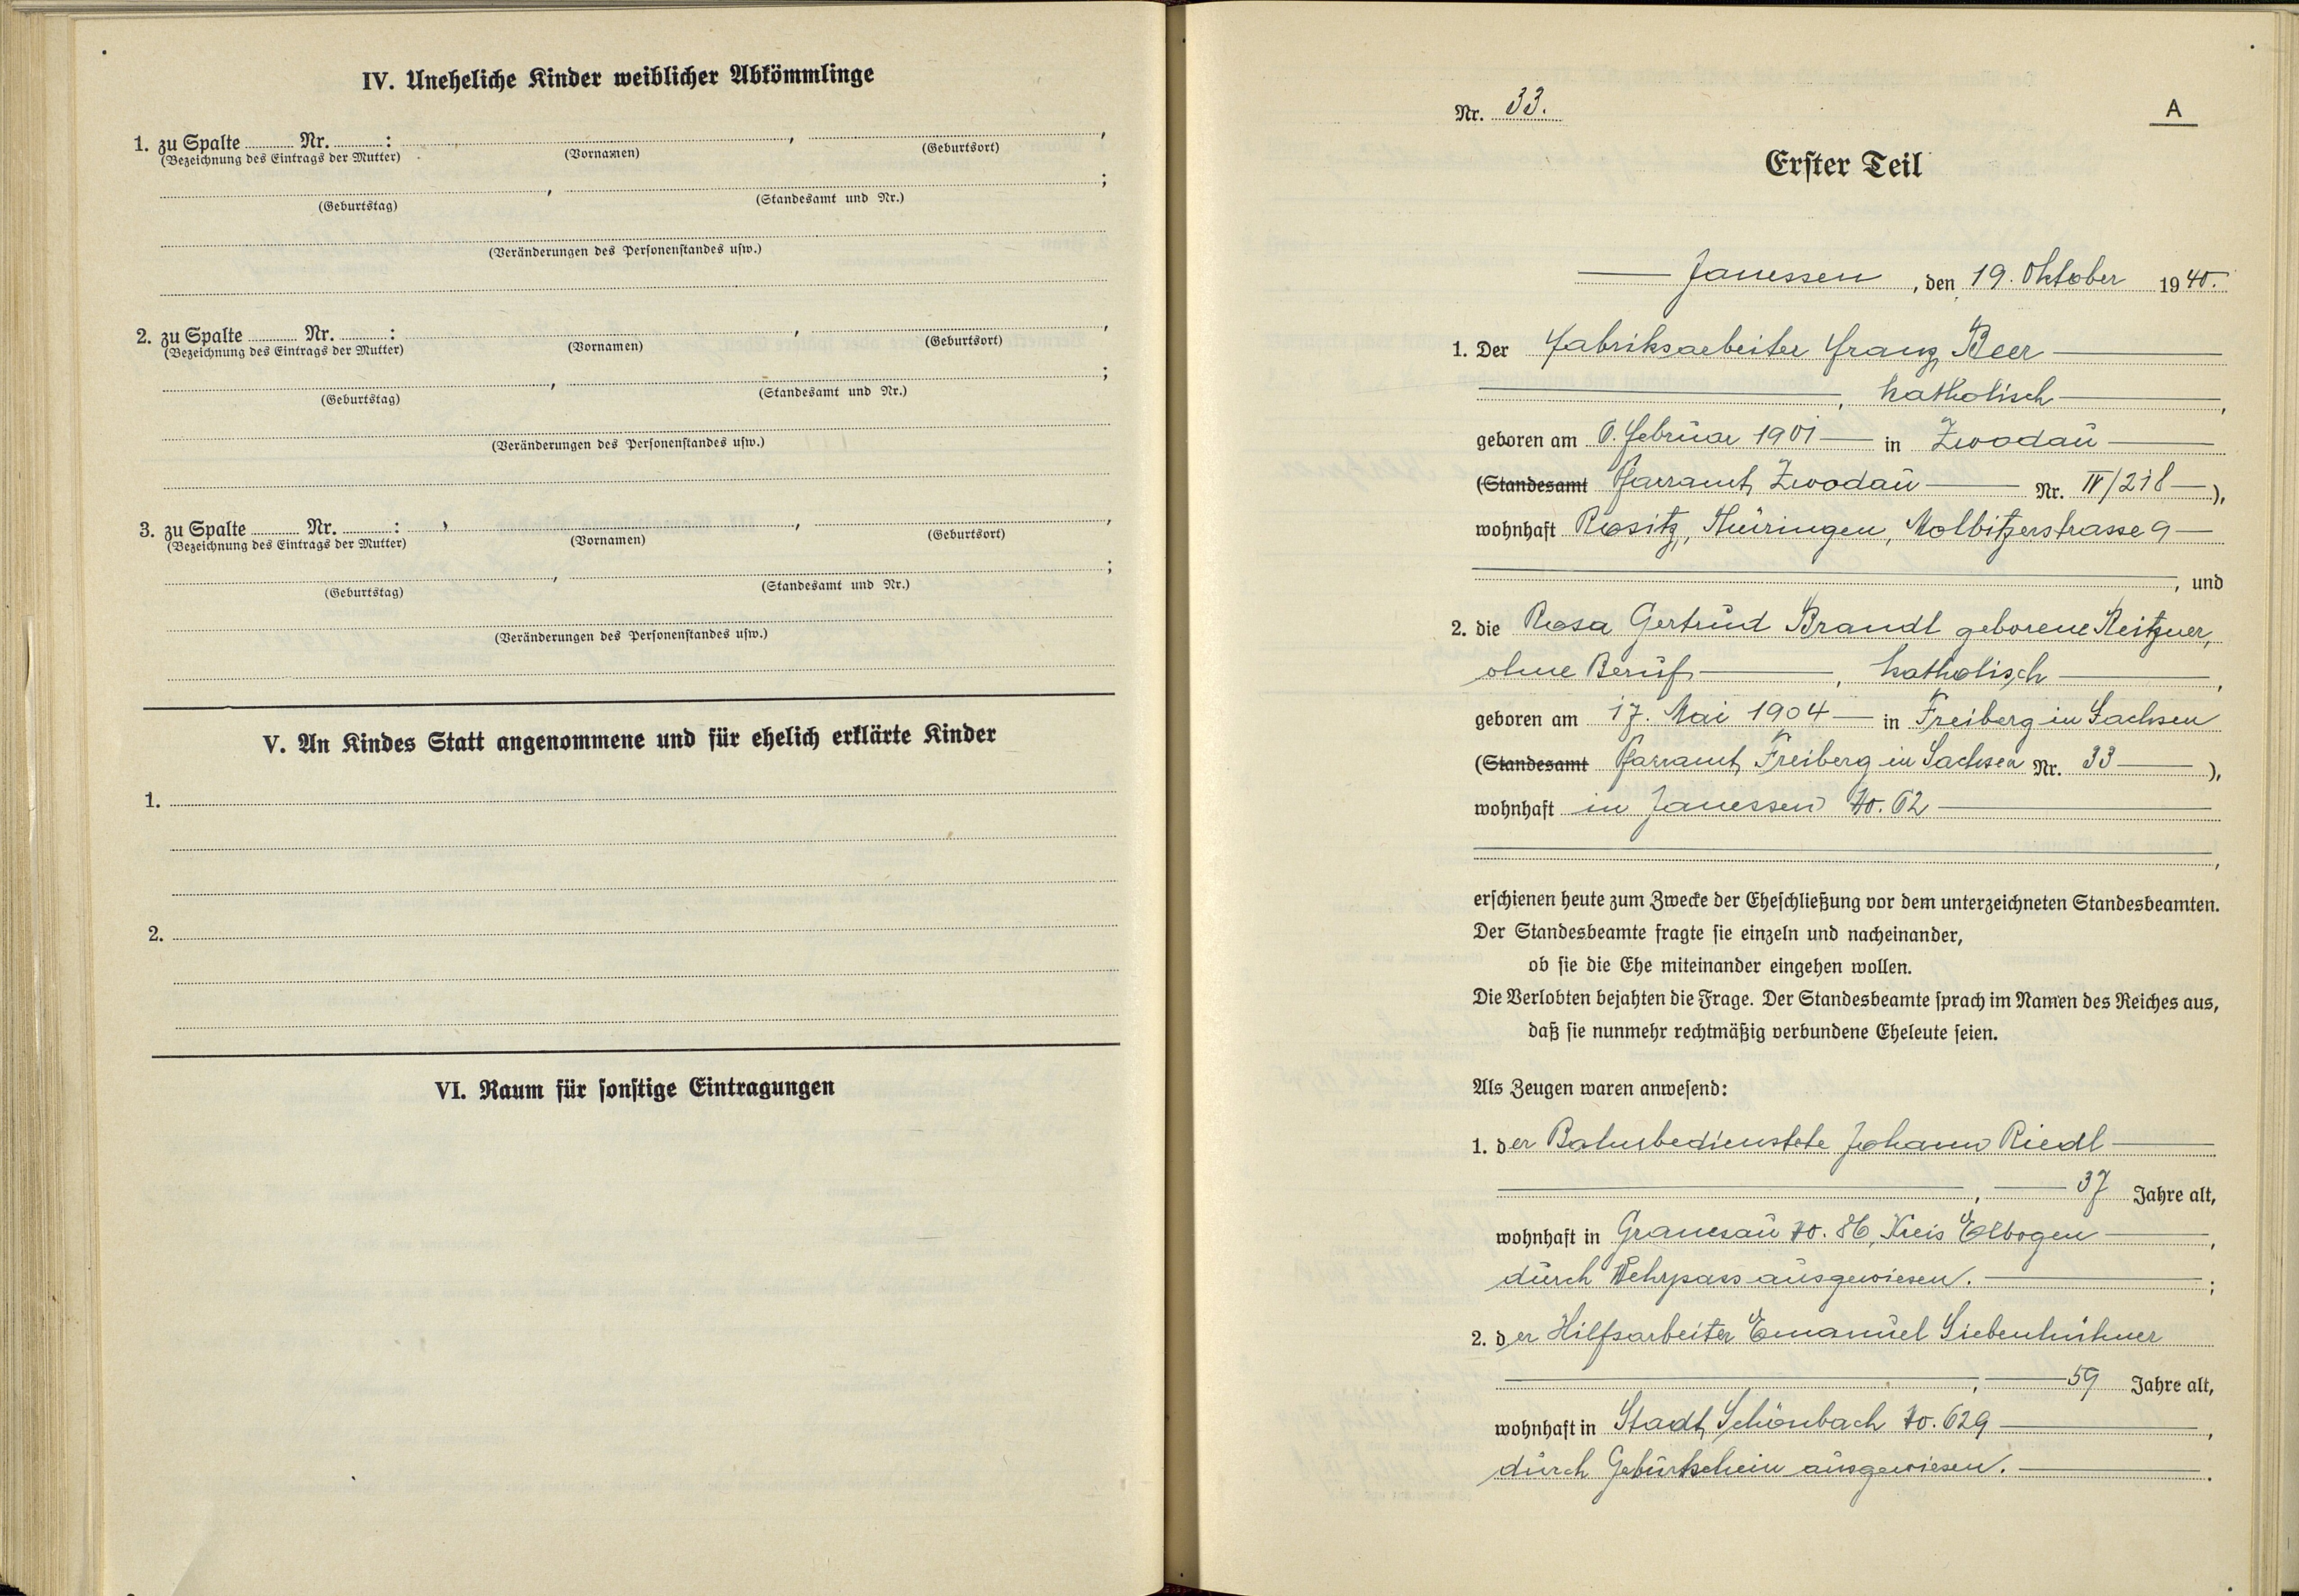 IV. Uneheliche Kinder weiblicher Abkömmlinge
1. zu Spalte ........ Nr. ........: ........, ........,
(Bezeichnung des Eintrags der Mutter) (Vornamen) (Geburtsort)
........, ........;
(Geburtstag) (Standesamt und Nr.)
(Veränderungen des Personenstandes usw.)
2. zu Spalte ........ Nr. ........: ........, ........,
(Bezeichnung des Eintrags der Mutter) (Vornamen) (Geburtsort)
........, ........;
(Geburtstag) (Standesamt und Nr.)
(Veränderungen des Personenstandes usw.)
3. zu Spalte ........ Nr. ........: ........, ........,
(Bezeichnung des Eintrags der Mutter) (Vornamen) (Geburtsort)
........, ........;
(Geburtstag) (Standesamt und Nr.)
(Veränderungen des Personenstandes usw.)
V. An Kindes Statt angenommene und für ehelich erklärte Kinder
1.
2.
VI. Raum für sonstige Eintragungen
Nr. 33.
A
Erster Teil
Janessen, den 19. Oktober 1940.
1. Der Fabriksarbeiter Franz Beer
, katholisch,
geboren am 6. Februar 1901 in Zwodau
(Standesamt Pfarramt Zwodau Nr. IV/218),
wohnhaft Rositz, Thüringen, Molbitzerstrasse 9
, und
2. die Rosa Gertrud Brandl geborene Reitzner,
ohne Beruf, katholisch,
geboren am 17. Mai 1904 in Freiberg in Sachsen
(Standesamt Pfarramt Freiberg in Sachsen Nr. 33),
wohnhaft in Janessen No. 62
,
erschienen heute zum Zwecke der Eheschließung vor dem unterzeichneten Standesbeamten.
Der Standesbeamte fragte sie einzeln und nacheinander,
ob sie die Ehe miteinander eingehen wollen.
Die Verlobten bejahten die Frage. Der Standesbeamte sprach im Namen des Reiches aus,
daß sie nunmehr rechtmäßig verbundene Eheleute seien.
Als Zeugen waren anwesend:
1. der Bahnbedienstete Johann Riedl
, 37 Jahre alt,
wohnhaft in Granesau No. 86, Kreis Elbogen,
durch Wehrpass ausgewiesen.;
2. der Hilfsarbeiter Emanuel Siebenhühner
, 59 Jahre alt,
wohnhaft in Stadt Schönbach No. 629,
durch Geburtschein ausgewiesen.